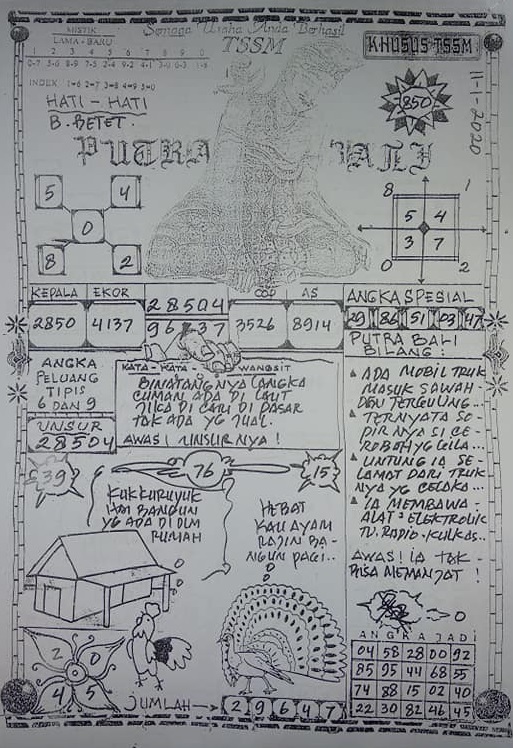 Semoga Usaha Anda Berhasil
MISTIK
LAMA - BARU
TSSM
KHUSUS TSSM
1 2 3 4 5 6 7 8 9 0
INDEX : 1=6 2=7 3=8 4=9 5=0
HATI - HATI
B. BETET.
850
11-1-2020
PUTRA BALI
5 4
0
8 2
8 1
5 4
3 7
0 2
KEPALA EKOR
2850 4137
28504
COP AS
3526 8914
ANGKA SPESIAL
29 86 51 03 47
ANGKA
PELUANG
TIPIS
6 DAN 9
UNSUR
28504
KATA - KATA WANGSIT
BINATANGNYA LANGKA
CUMAN ADA DI LAUT
JIKA DI CARI DI DASAR
TAK ADA YG JUAL.
AWAS! UNSURNYA!
PUTRA BALI
BILANG :
ADA MOBIL TRUK
MASUK SAWAH-
DEN TERGULUNG...
TERNYATA SO-
PIRNYA SI CE-
ROBOH YG GILA...
UNTUNG IA SE-
LAMAT DARI TRUK-
NYA YG CELAKA...
IA MEMBAWA-
ALAT² ELEKTRONIK
TV. RADIO - KULKAS..
AWAS! IA TAK-
BISA MEMANJAT!
39
76
15
KUKKURUYUK
YG ADA DI DLM
RUMAH
HEBAT
KAU AYAM
RAJIN BA-
NGUN PAGI..
2 0
4 5
JUMLAH
2 9 6 4 7
0
ANGKA JADI
04 58 28 00 92
85 95 44 68 55
74 88 15 02 40
22 30 82 46 45